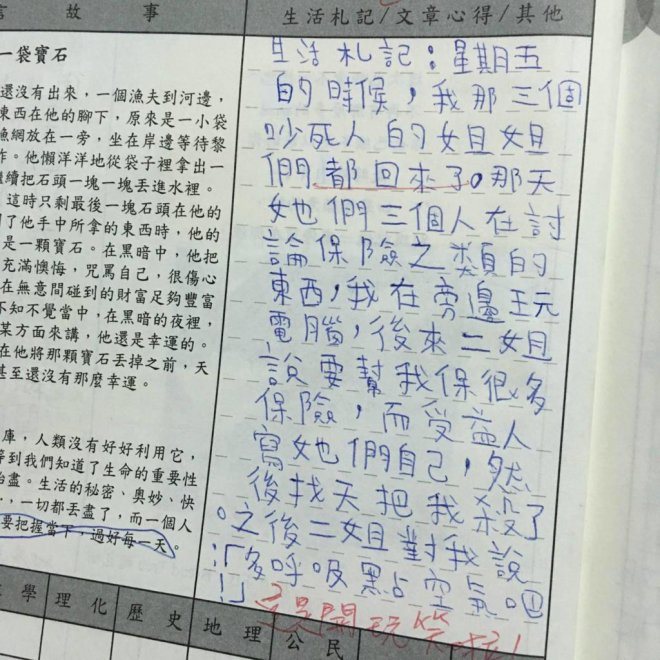 言故事
一袋寶石
還沒有出來，一個漁夫到河邊，
東西在他的腳下，原來是一小袋
漁網放在一旁，坐在岸邊等待黎
作。他懶洋洋地從袋子裡拿出一
繼續把石頭一塊一塊丟進水裡。
這時只剩最後一塊石頭在他的
了他手中所拿的東西時，他的
是一顆寶石。在黑暗中，他把
充滿懊悔，咒罵自己，很傷心
在無意間碰到的財富足夠豐富
不知不覺當中，在黑暗的夜裡，
某方面來講，他還是幸運的。
在他將那顆寶石丟掉之前，天
甚至還沒有那麼幸運。
庫，人類沒有好好利用它，
等到我們知道了生命的重要性
殆盡。生活的秘密、奧妙、快
，一切都丟盡了，而一個人
要把握當下，過好每一天。
生活札記/文章心得/其他
生活札記：星期五
的時候，我那三個
吵死人的姐姐
們都回來了。那天
她們三個人在討
論保險之類的
東西，我在旁邊玩
電腦，後來二姐
說要幫我保很多
保險，而受益人
寫她們自己，然
後找天把我殺了
。之後二姐對我說
：「多呼吸點空氣吧
！」
這是開玩笑啦！
學
理化
歷史
地理
公民